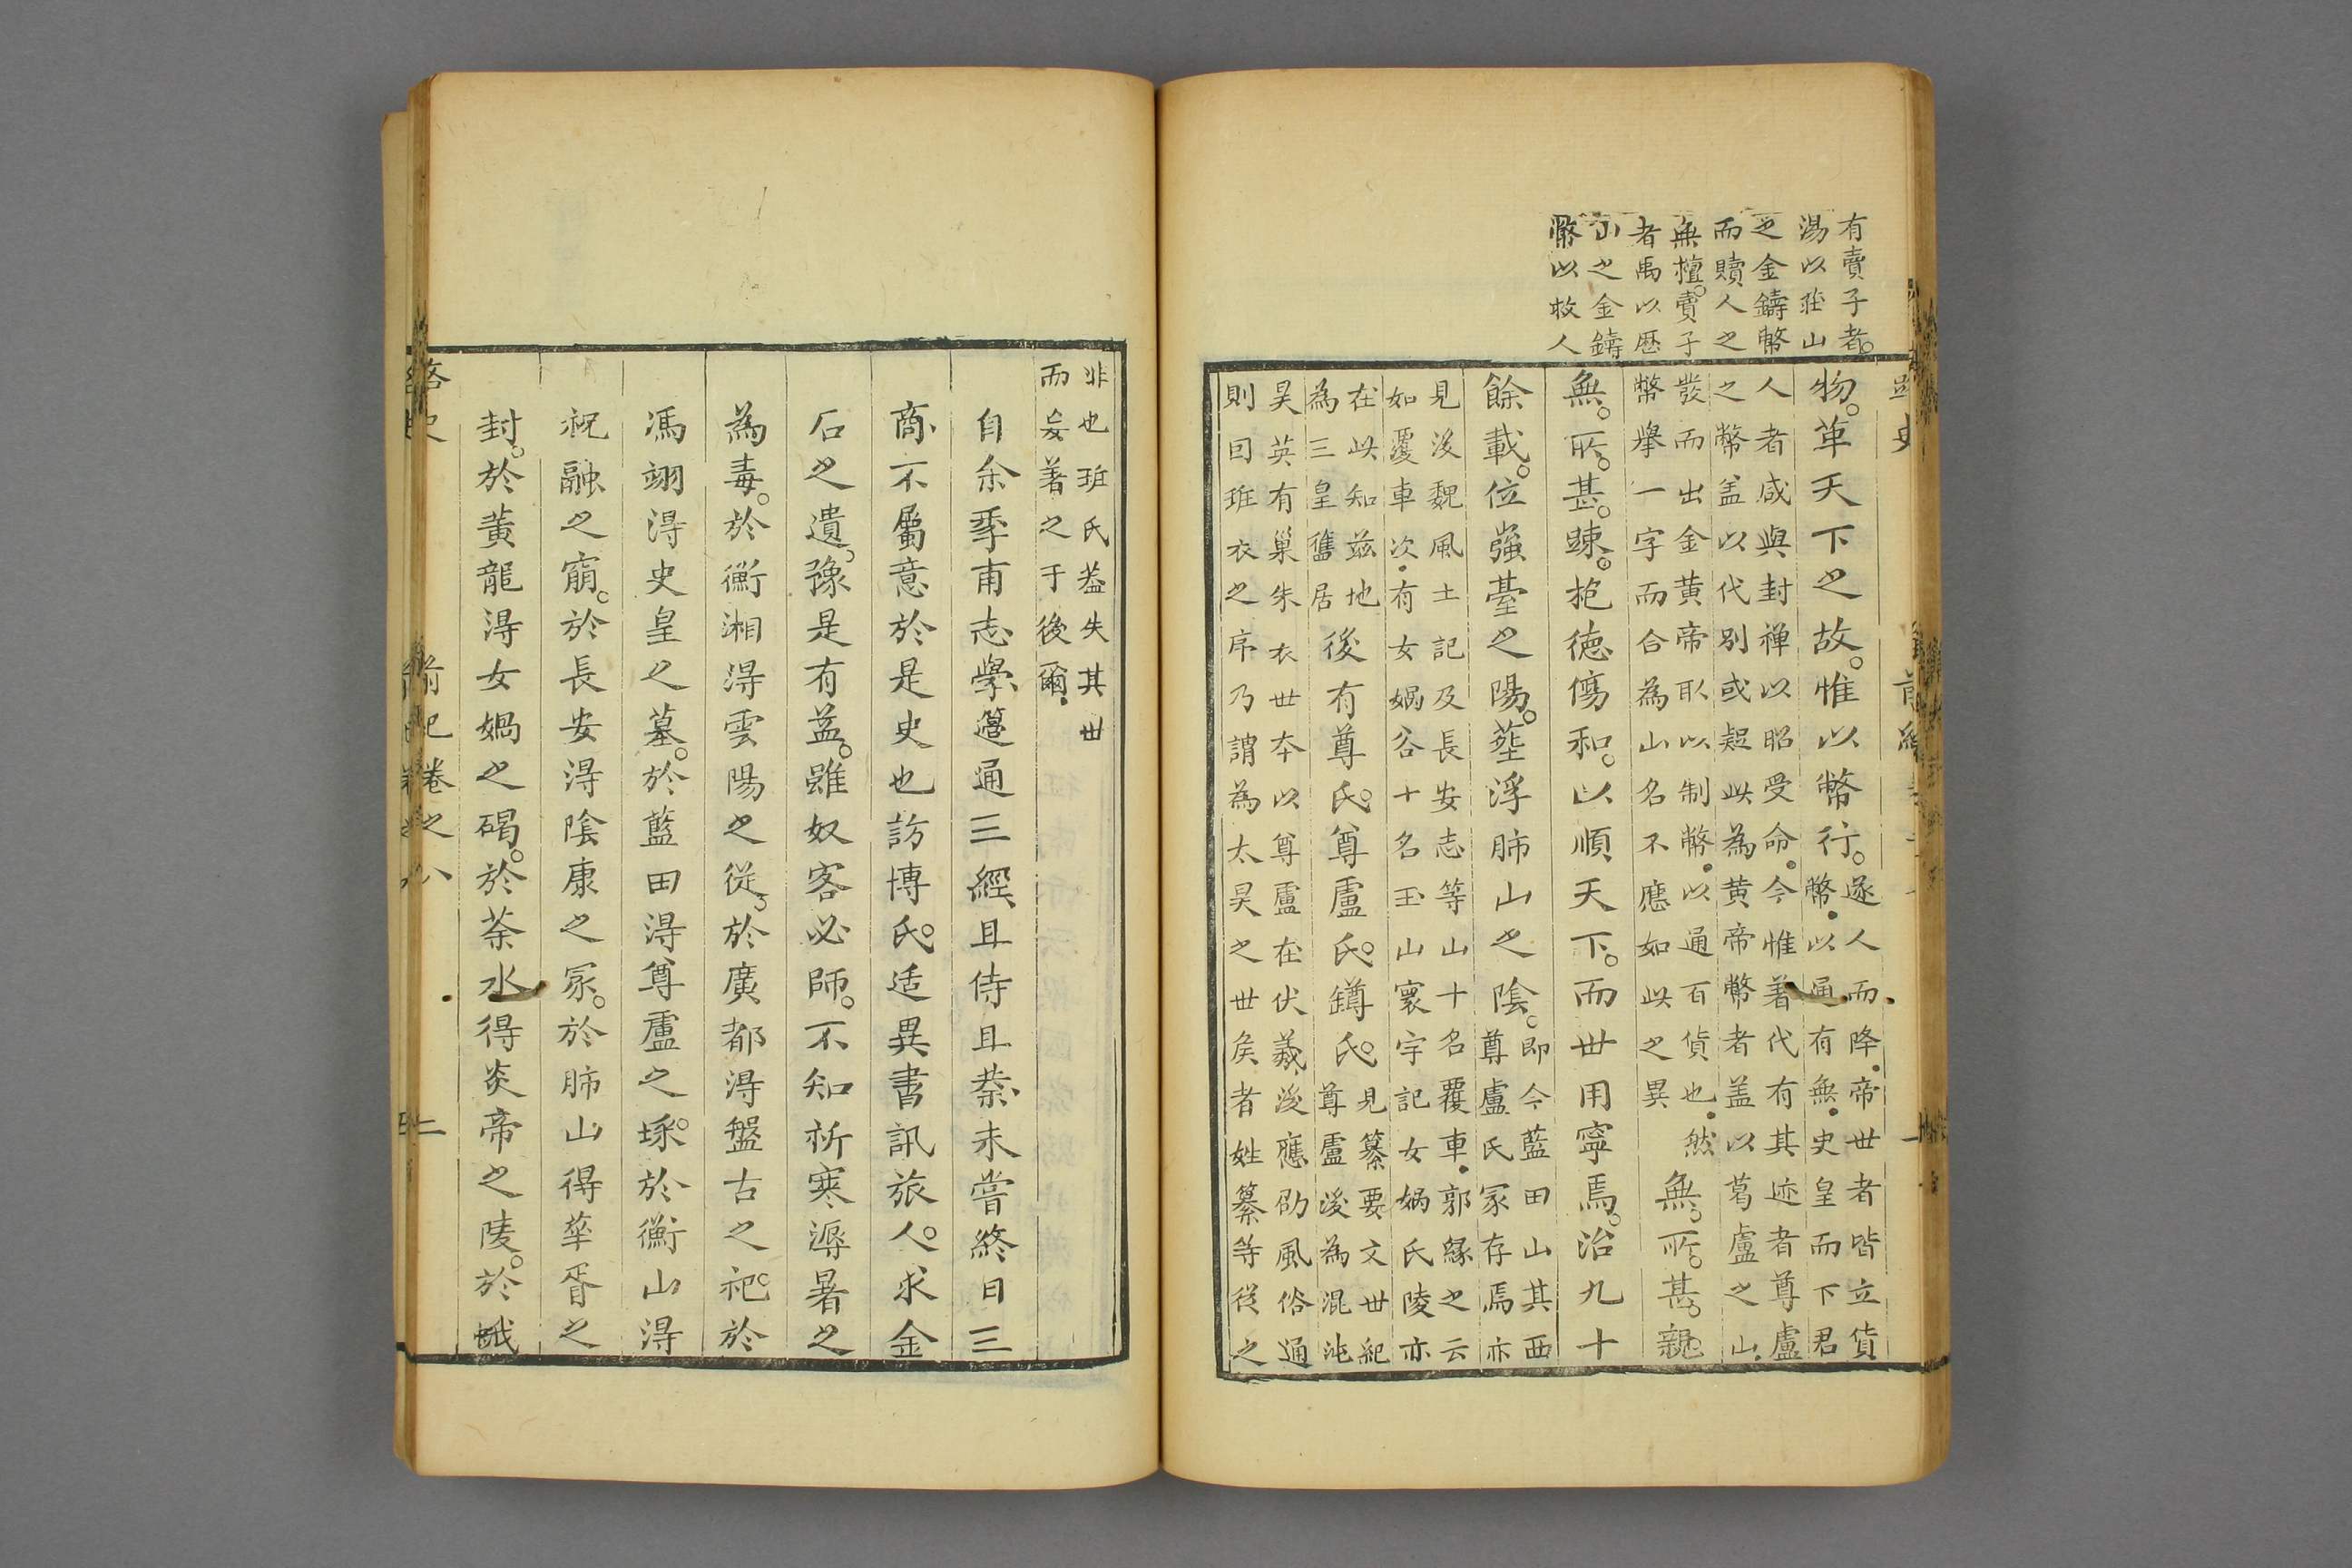 有賣子者。
湯以莊山
之金鑄幣
而贖人之
無𥹛賣子
者禹以歷
山之金鑄
幣以救人
物。革天下之故。惟以幣行。遂人而降.帝世者皆立貨
幣.以通有無.史皇而下君
人者咸與封禪以昭受命.今惟著代有其迹者尊盧
之幣盖以代别或疑此為黄帝幣者盖以葛盧之山.
發而出金黄帝取以制幣.以通百貨也.然
幣舉一字而合為山名不應如此之異
無。所。甚。親。
無。所。甚。踈。抱徳煬和。以順天下。而世用寧焉。治九十
餘載。位強臺之陽。塟浮肺山之陰。即今藍田山其西
尊盧氏冢存焉亦
見後魏風土記及長安志等山十名覆車.郭緣之云
如覆車次.有女媧谷十名玉山寰宇記女媧氏陵亦
在此知茲地
為三皇舊居後有尊氏。尊盧氏。鐏氏。見纂要文世紀
尊盧後為混沌
昊英有巢朱衣世本以尊盧在伏羲後應劭風俗通
則回班衣之序乃謂為太昊之世侯者姓纂等從之
非也班氏葢失其世
而妄著之于後爾.
自余季甫志學、邅通三經、且侍且養、未嘗終日三
商、不屬意於是史也訪博氏。适異書訊旅人。求金
石之遺、豫是有益。雖奴客必師。不知祈寒溽暑之
為毒。於衡湘得雲陽之從、於廣都得盤古之祀。於
馮翊得史皇之墓。於藍田得尊盧之㙇。於衡山得
祝融之窮。於長安得陰康之冢。於肺山得華胥之
封。於黃龍得女媧之碣。於茶水得炎帝之陵。於峨
路史
前紀卷之八
二